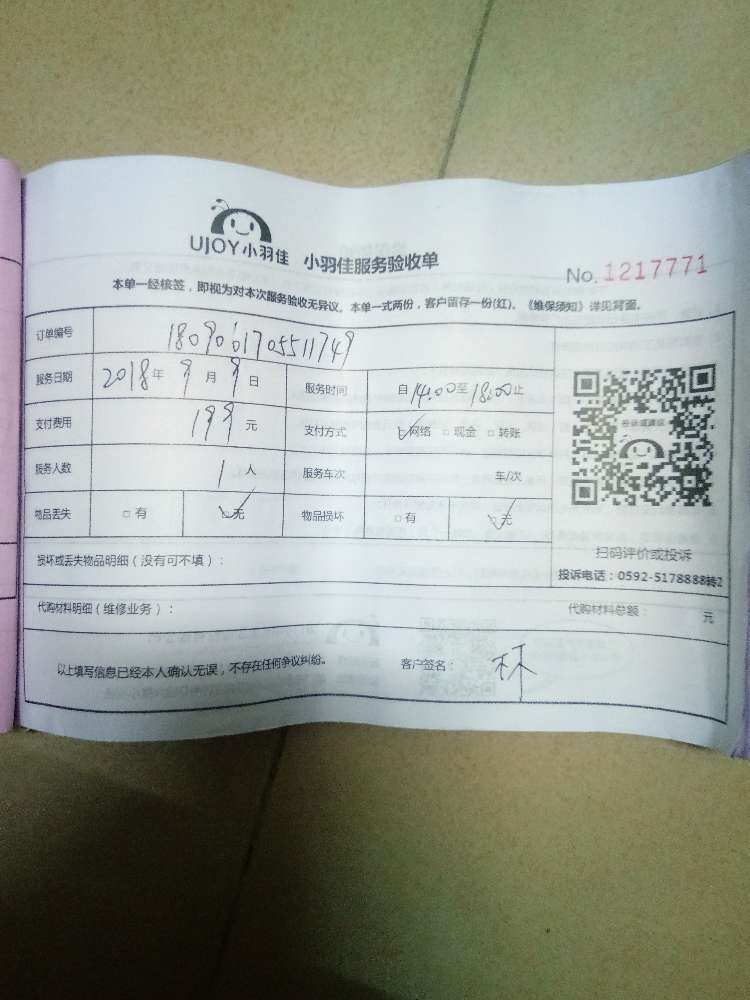 UJOY小羽佳 小羽佳服务验收单
No. 1217771
本单一经核签，即视为对本次服务验收无异议。本单一式两份，客户留存一份(红)。《维保须知》详见背面。
订单编号 1809061705511749
服务日期 2018年 9月 9日 服务时间 自14:00至18:00止
支付费用 199元 支付方式 ☑网络 □现金 □转账
服务人数 1人 服务车次 车/次
物品丢失 □有 ☑无 物品损坏 □有 ☑无
扫码评价或投诉
投诉电话：0592-5178888转2
损坏或丢失物品明细（没有可不填）：
代购材料明细（维修业务）： 代购材料总额： 元
以上填写信息已经本人确认无误，不存在任何争议纠纷。 客户签名： 林